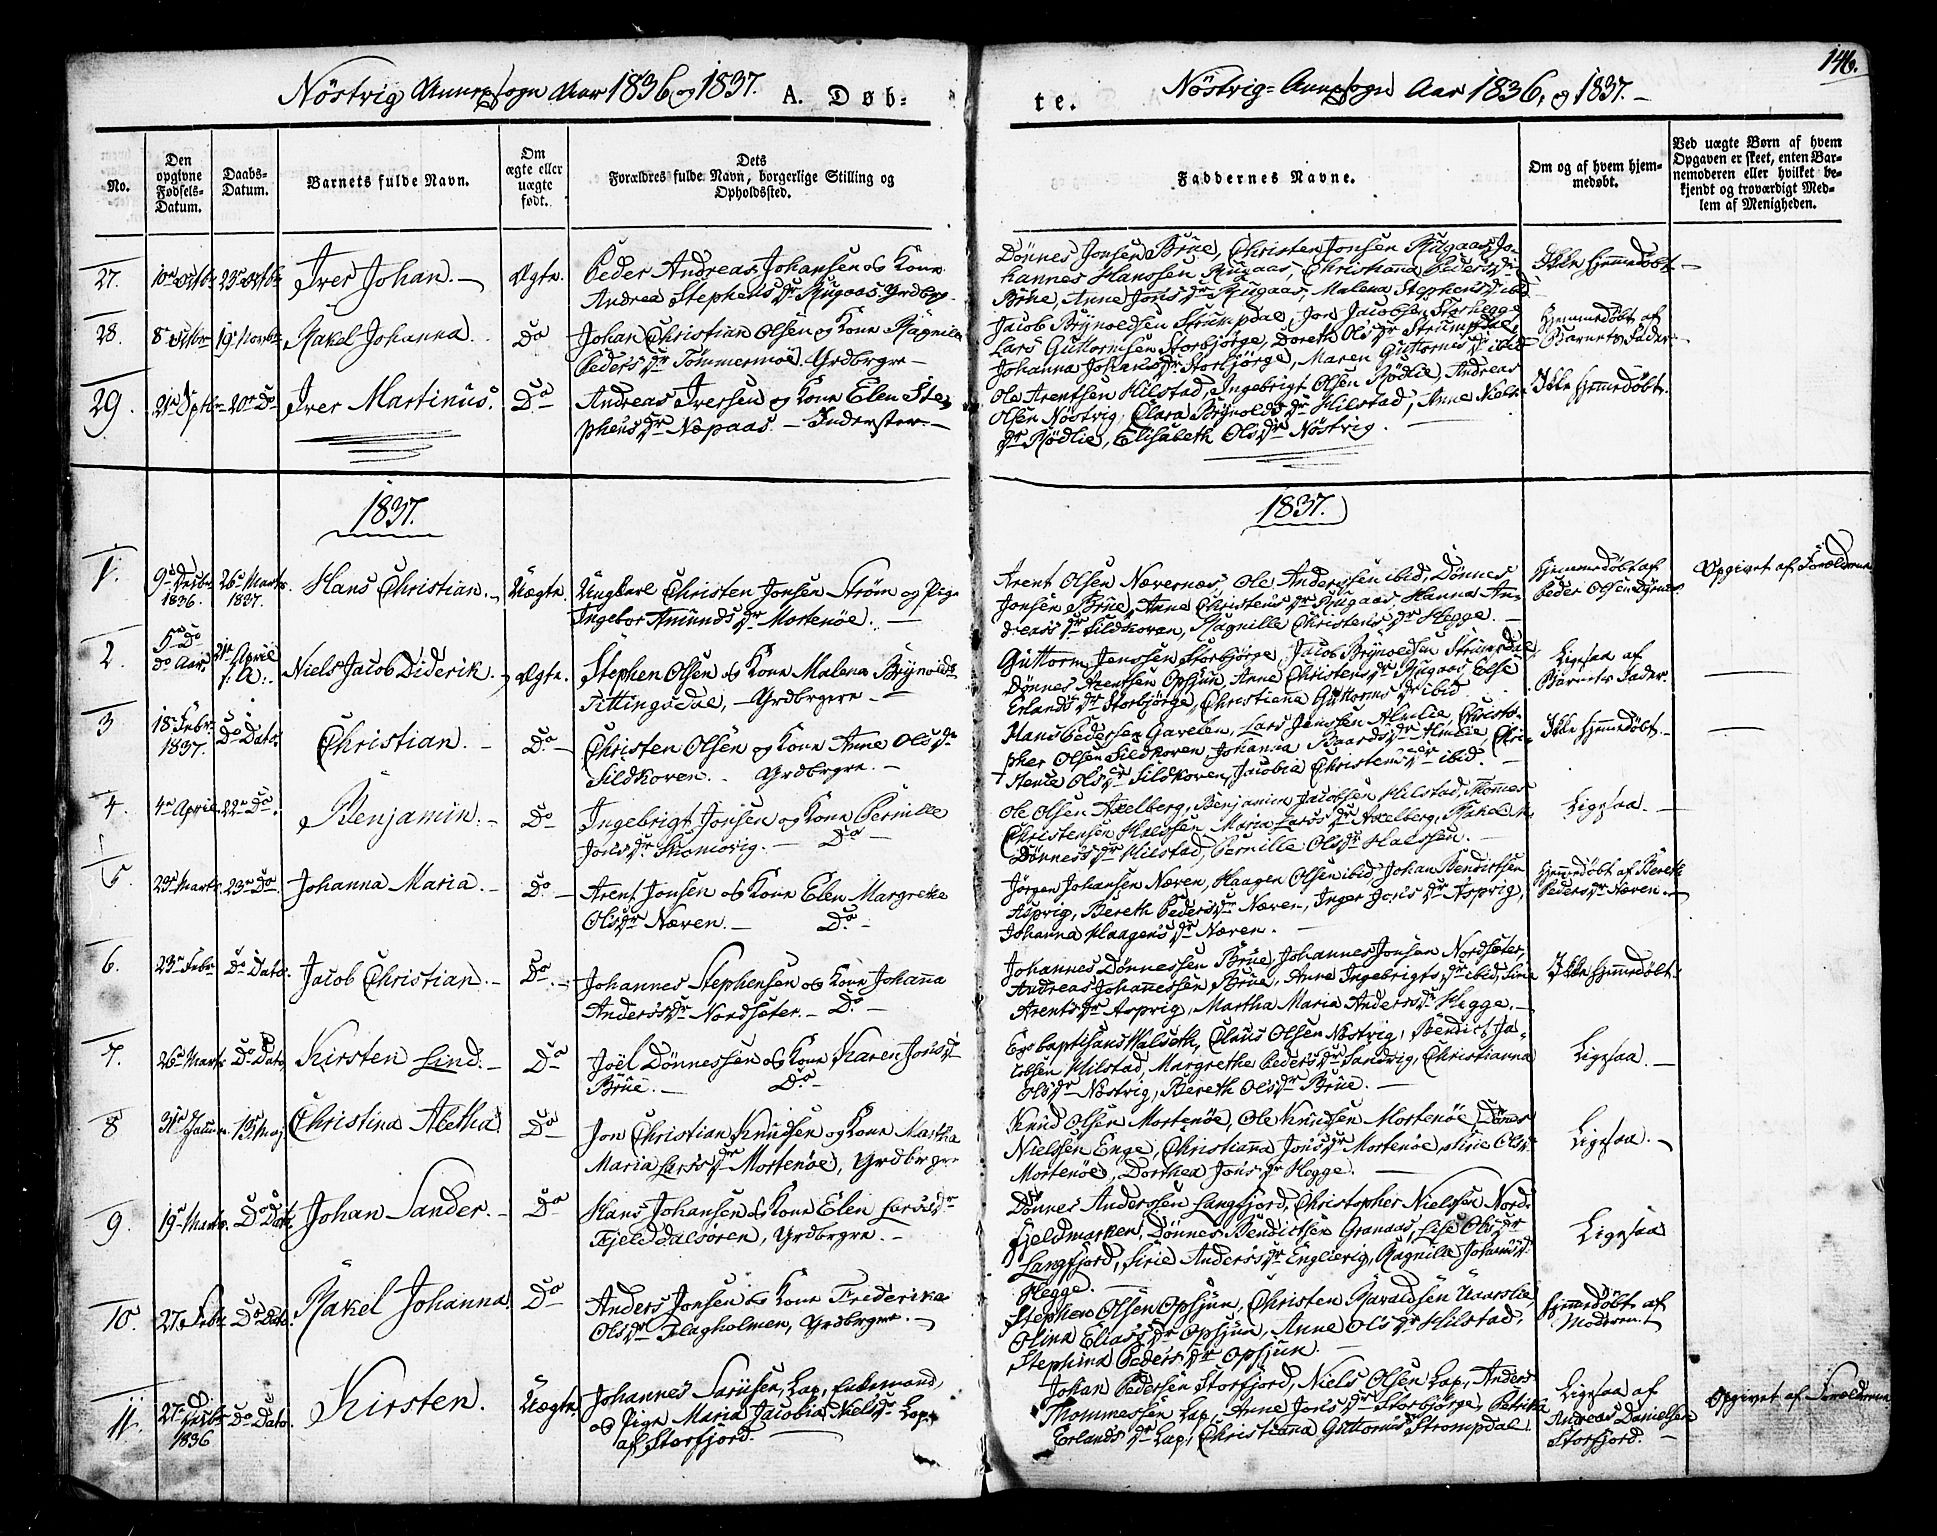 146.
Nöstvig Annexsogn Aar 1836 og 1837. A. Døb-
te. Nöstvig-Annexsogn Aar 1836, og 1837.
No.
Den opgivne Fødsels-Datum.
Daabs-Datum.
Barnets fulde Navn.
Om ægte eller uægte født.
Dets Forældres fulde Navn, borgerlige Stilling og Opholdssted.
Faddernes Navne.
Om og af hvem hjem-medøbt.
Ved uægte Børn af hvem Opgaven er skeet, enten Bar-nemoderen eller hvilket be-kjendt og troværdigt Med-lem af Menigheden.
27. Iver Johan. Ægte.
Peder Andreas Johansen og Kone
Andrea Stephens Dr Rugaas. Grdbrg.
Dønnes Jonsen Brue, Christen Jonsen Rugaas, Jo-
hannes Hanssen Rugaas, Christianna Peders Dr
Brue, Anne Jons Dr Rugaas, Malena Stephens Dr ibid
Ikke hjemmedøbt
28. Rakel Johanna. Do
Johan Christian Olsen og Kone Ragnilla
Peders Dr Tømmermoe. Grdbrgre
Jacob Brynoldsen Strumpdal, Jon Jacobsen Storhegge
Lars Guttormsen Storbjörge, Doreth Ols Dr Strumpdal,
Johanna Johans Dr Storbjörge, Maren Guttorms Dr ibid
Hjemmedøbt af
Barnets Fader
29. Iver Martinus. Do
Andreas Iversen og Kone Elen Ste-
phens Dr Næpaas. Inderster.
Ole Arentsen Hilstad, Ingebrigt Olsen Rödlie, Andreas
Olsen Nöstvig, Clara Brynolds Dr Hilstad, Anne Niels
Dr Rödlie, Elisabeth Ols Dr Nöstvig.
Ikke hjemmedøbt.
1837.
1837.
1. 9de Decbr 1836. 26de Marts 1837. Hans Christian. Uægte.
Ungkarl Christen Jonsen Strøm og Pige
Ingebor Amunds Dr Mortenöe.
Arent Olsen Nævernæs, Ole Anderssen ibid, Dønnes
Jonsen Brue, Anne Christens Dr Rugaas, Hanna An-
dreas Dr Sildkoven, Ragnille Christens Dr Hegge.
Hjemmedøbt af
Peder Olsen
Opgivet af Forældrene
2. 5te Do do Aar. April Niels Jacob Diderik. Ægte.
Stephen Olsen og Kone Malena Brynolds
Tettingsdal, Grdbrgere
Guttorm Jenssen Storbjörge, Jacob Brynoldsen Strumpdal,
Dønnes Arentsen Opsjun, Anne Christens Dr Rugaas, Else
Erlands Dr Storbjörge, Christiana Guttorms Dr ibid
Ligesaa af
Barnets Fader.
3. 18de Febr. 1837. Do Dato Christian. Do
Christen Olsen og Kone Anne Ols Dr
Sildkoven. Grdbrgre.
Hans Pedersen Gavelen, Lars Jenssen Almlie, Christo-
pher Olsen Sildkoven, Johanna Baards Dr Almlie, Chri-
stence Ols Dr Sildkoven, Jacobia Christens Dr ibid.
Ikke hjemmedøbt.
4. 4de April. 22de Do. Benjamin. Do
Ingebrigt Jonsen og Kone Pernille
Jons Dr Skomovig. Do
Ole Olsen Axelberg, Benjamin Jacobsen Hilstad, Thomes
Christensen Halssen, Maria Lars Dr Axelberg, Rakel M.
Dønnes Dr Hilstad, Pernille Ols Dr Halssen.
Ligesaa.
5. 23de Marts. 23de Do. Johanna Maria. Do
Arent Jonsen og Kone Elen Margrethe
Ols Dr Næren. Do
Jörgen Johansen Næren, Haagen Olsen ibid, Johan Bendictsen
Aspvig, Bereth Peders Dr Næren, Inger Jons Dr Aspvig,
Johanna Haagens Dr Næren.
Hjemmedøbt af Bereth
Peders Dr Næren.
6. 23de Febr Do Dato. Jacob Christian. Do
Johannes Stephensen og Kone Johanna
Anders Dr Nordsøter. Do
Johannes Dønnessen Brue, Johannes Jonsen Nordsøter,
Andreas Johannessen Brue, Anne Ingebrigts Dr ibid, Sirie
Arents Dr Aspvig, Martha Maria Anders Dr Hegge.
Ikke hjemmedøbt.
7. 26de Marts Do Dato. Kirsten Lind. Do
Joël Dønnessen og Kone Karen Jons Dr
Brue. Do
Halseth, Claus Olsen Nöstvig, Bendict Ja-
cobsen Hilstad, Margrethe Peders Dr Sandvig, Christianna
Ols Dr Nöstvig, Bereth Ols Dr Brue.
Ligesaa.
8 Christina Aletha. Do
Jon Christian Knudsen og Kone Martha
Maria Lars Dr Mortenöe, Grdbrgre
Knud Olsen Mortenöe, Ole Knudsen Mortenöe, Dønes
Nielsen Enge, Christianna Jons Dr Mortenöe, Sirie Ols Dr
Mortenöe, Dorthea Jons Dr Hegge.
Ligesaa.
9. 19de Marts. Do Dato Johan Sander. Do
Hans Johansen og Kone Elen Lars Dr
Fjelddalsören, Grdbrgre.
Dønnes Anderssen Langfjord, Christopher Nielsen Nord-
fjeldmarken, Dønnes Bendictsen Granaas, Lise Ols Dr
Langfjord, Sirie Anders Dr Englievig, Ragnille Johans Dr
Hegge.
Ligesaa
10. 27. Febr Do Dato. Rakel Johanna. Do
Anders Jonsen og Kone Frederika
Ols Dr Flagholmen, Grdbrgre.
Stephen Olsen Opsjun, Christen Baraldsen Uaarslie,
Olina Elias Dr Opsjun, Anne Ols Dr Hilstad,
Stephina Peders Dr Opsjun.
Hjemmedøbt af
Moderen.
11. 27de Decbr 1836 Do Dato. Kirsten. Uægte.
Johannes Larsen, Lap, Enkemand,
og Pige Maria Jacobia Niels Dr Lap
af Storfjord.
Johan Pedersen Storfjord, Niels Olsen Lap, Anders
Thommessen Lap, Anne Jons Dr Storbjörge, Patrika
Erlands Dr Lap, Christianna Guttorms Dr Strompdal
Ligesaa af
Andreas Danielsen
Storfjord.
Opgivet af Forældrene